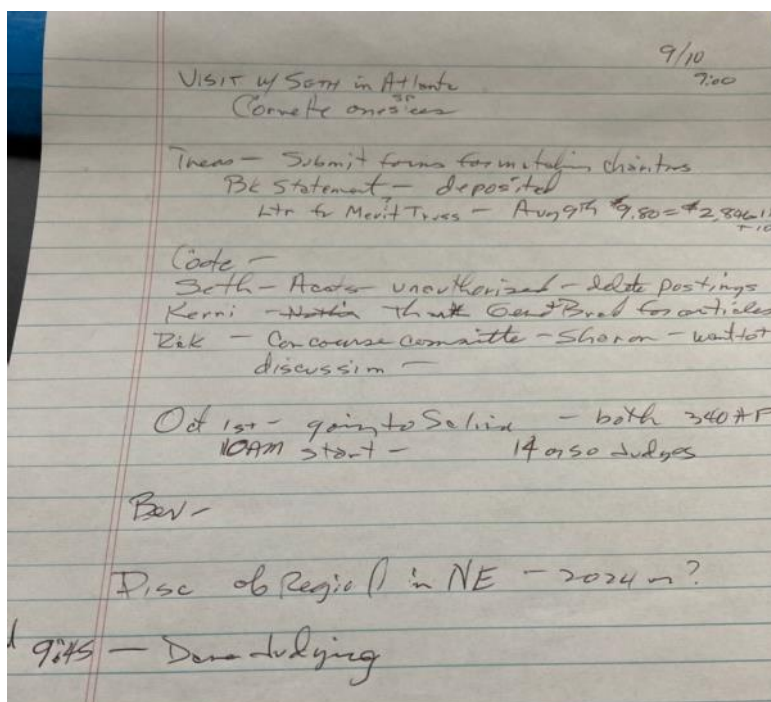 9/10
7:00
VISIT w/ SETH in Atlanta
Corvette
Treas — Submit forms for
Bk Statement — deposited
Ltr fr Merit — Aug 9th $9.80 = $2,896
+10
Seth — Accts — unauthorized — delete postings
Kerri — Thank Gen + Brad for articles
Rik — Concourse committe — Sharon — want to
discussion —
Oct 1st — going to Salina — both 340
10AM start — 14 or so Judges
Bev —
Disc of in NE — 2024 ?
9:45 — Done Judging